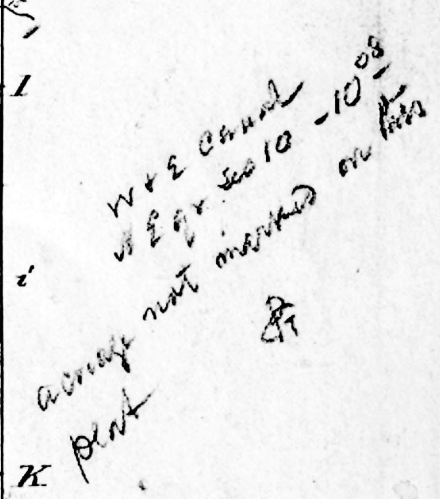 I
W & E Canal
N E qr Sec 10 - 10 08
acreage not marked on this
plat
K